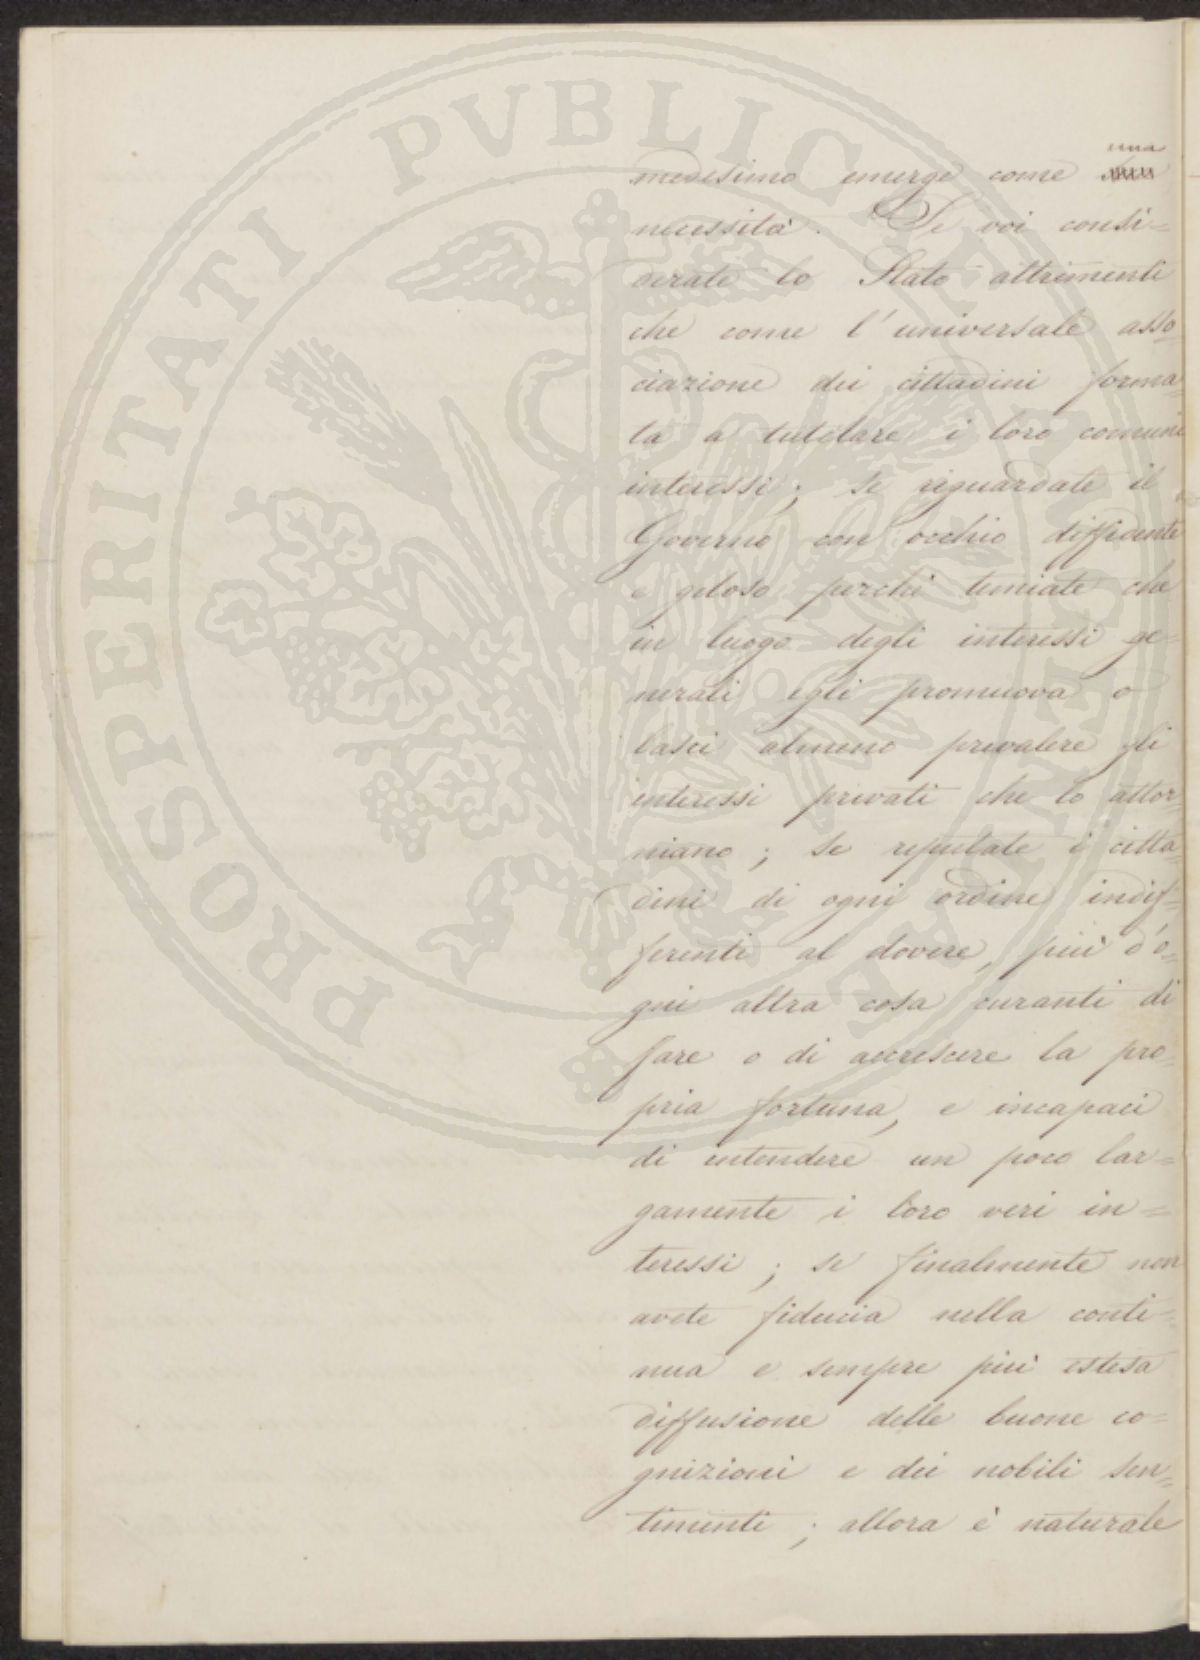 PROSPERITATI PVBLICAE AVGENDAE
una
medesimo emerge come
necessità. Se voi consi=
derate lo Stato altrimenti
che come l'universale asso=
ciazione dei cittadini forma=
ta a tutelare i loro comuni
interessi; se riguardate il
Governo con occhio diffidente
e geloso perchè temiate che
in luogo degli interessi ge=
nerali egli promuova o
lasci almeno prevalere gli
interessi privati che lo attor=
niano; se reputate i citta=
dini di ogni ordine indif=
ferenti al dovere, più d'o=
gni altra cosa curanti di
fare o di accrescere la pro=
pria fortuna, e incapaci
di intendere un poco lar=
gamente i loro veri in=
teressi; se finalmente non
avete fiducia nella conti=
nua e sempre più estesa
diffusione delle buone co=
gnizioni e dei nobili sen=
timenti; allora è naturale